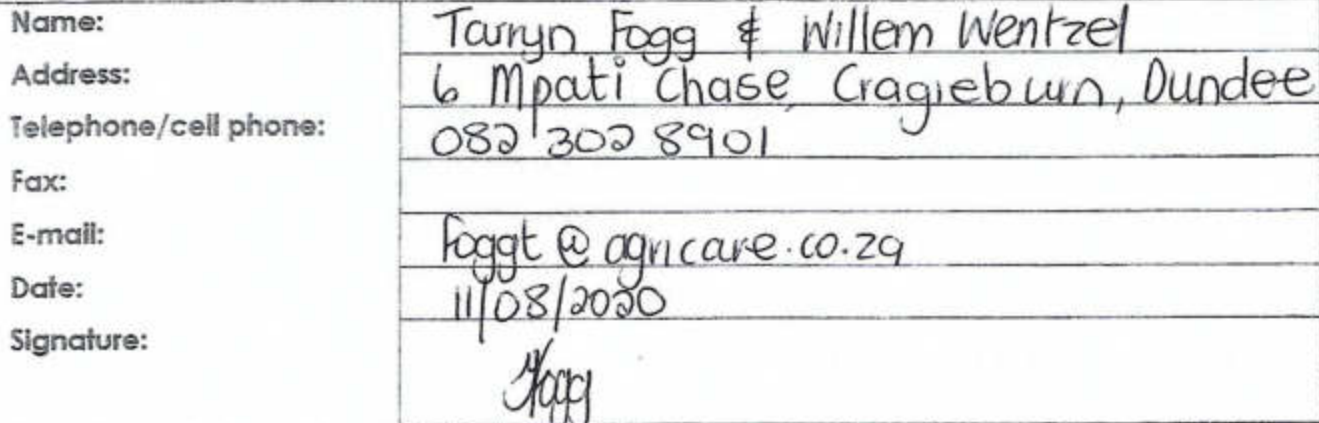 Name: Tarryn Fogg & Willem Wentzel
Address: 6 Mpati Chase, Cragieburn, Dundee
Telephone/cell phone: 082 302 8901
Fax:
E-mail: foggt@agricare.co.za
Date: 11/08/2020
Signature: TFogg